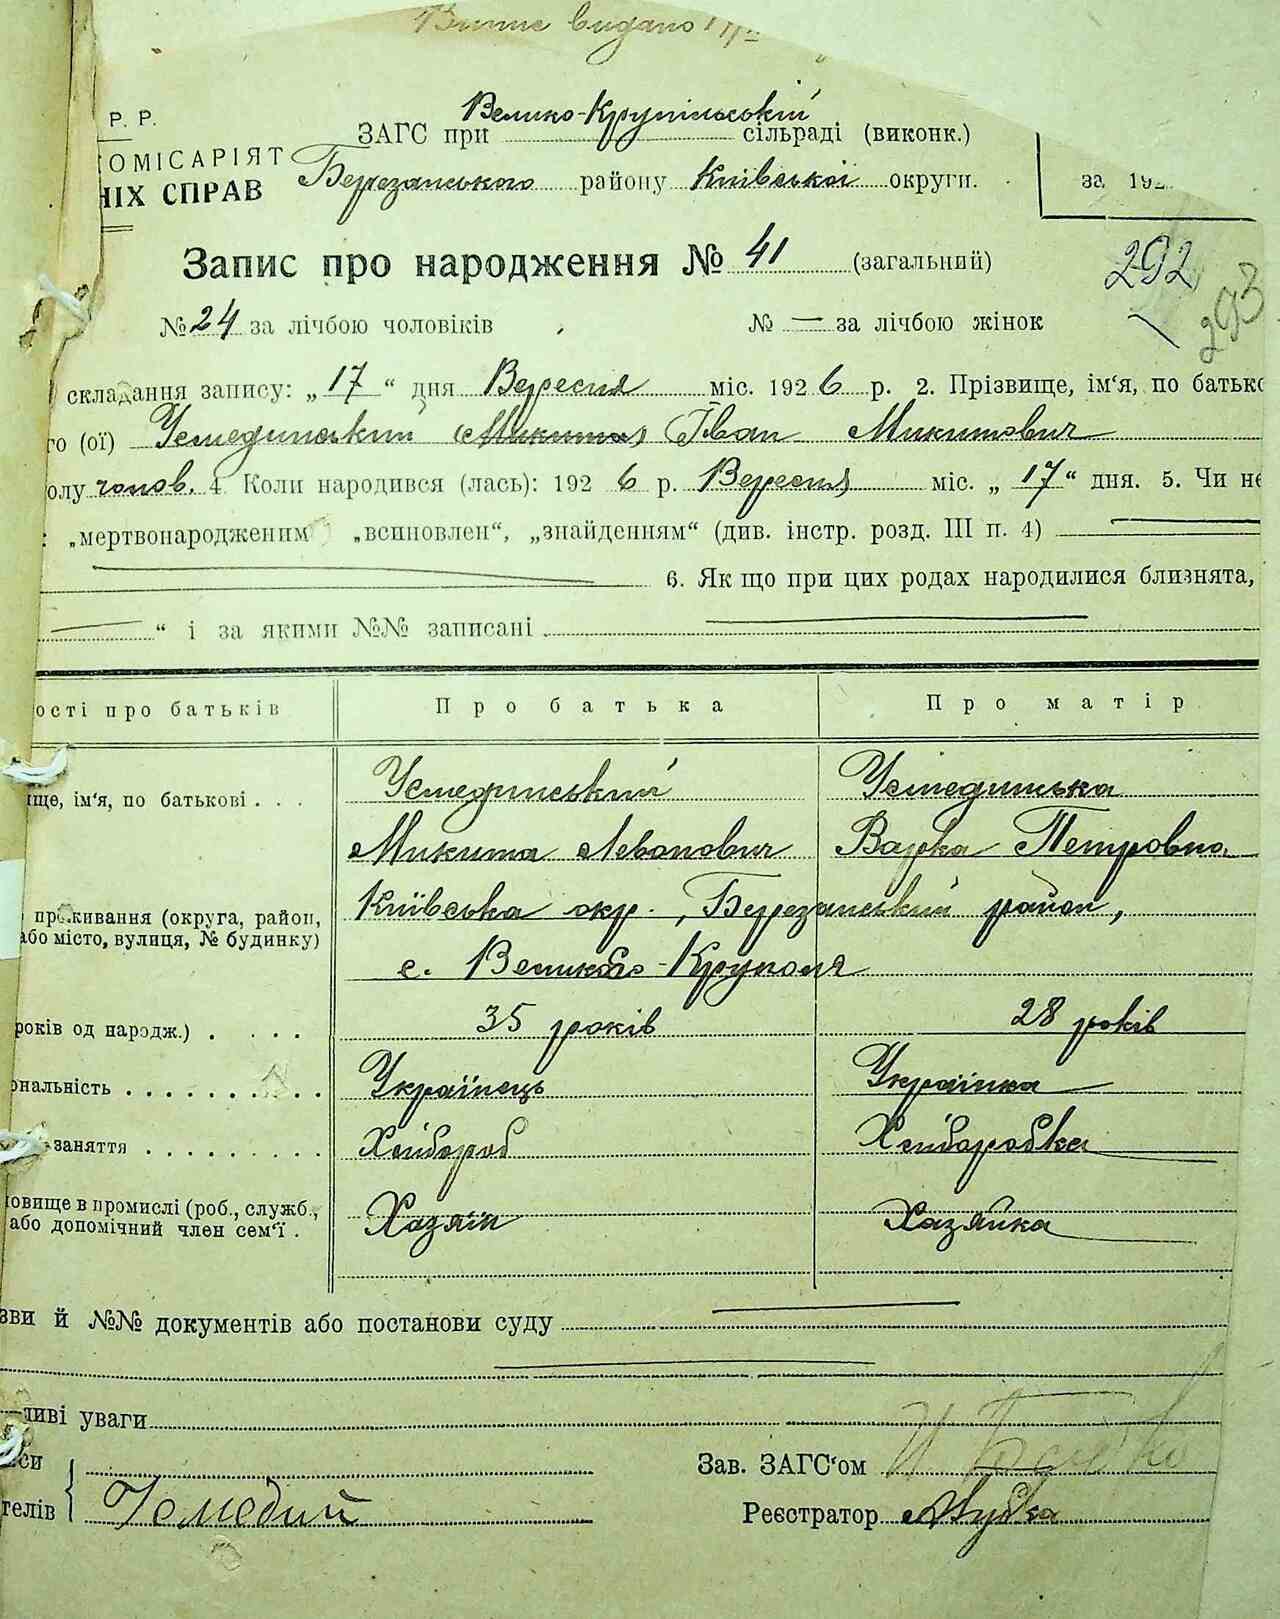 Випис видано
Р. Р.
ОМІСАРІЯТ
НІХ СПРАВ
ЗАГС при Велико-Крупільській сільраді (виконк.)
Березанського району Київської округи.
за 192
Запис про народження № 41 (загальний)
292
293
№ 24 за лічбою чоловіків № — за лічбою жінок
складання запису: „17“ дня Вересня міс. 1926 р. 2. Прізвище, ім‘я, по батько
го (ої) Устединський Іван Микитович
олу чолов. 4 Коли народився (лась): 1926 р. Вересня міс. „17“ дня. 5. Чи не
: „мертвонародженим „всиновлен“, „знайденням“ (див. інстр. розд. III п. 4) —
— 6. Як що при цих родах народилися близнята,
— “ і за якими №№ записані —
ості про батьків Про батька Про матір
ище, ім‘я, по батькові . . . Устединський Устединська
Микита Левонович Варка Петровна
проживання (округа, район, Київська окр., Березанський район,
або місто, вулиця, № будинку) с. Велико-Круполя
років од народж.) . . . . 35 років 28 років
ональність . . . . . . . . . . Українець Українка
заняття . . . . . . . . . Хлібороб Хліборобка
овище в промислі (роб., служб.,
або допомічний член сем‘ї . Хазяїн Хазяйка
зви й №№ документів або постанови суду —
—
ливі уваги
си
Зав. ЗАГС‘ом
телів
Реєстратор